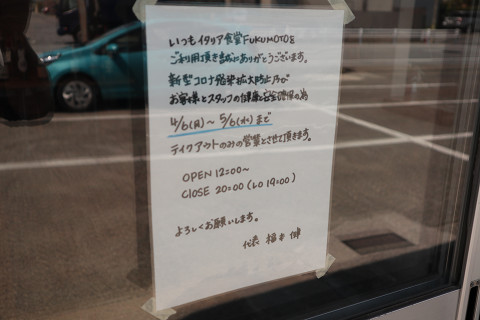 いつもイタリア食堂FUKUMOTOを
ご利用頂き誠にありがとうございます。
新型コロナ感染拡大防止及び
お客様とスタッフの健康と安全確保の為
4/6(月)～5/6(水)まで
テイクアウトのみの営業とさせて頂きます。
OPEN 12:00～
CLOSE 20:00 (LO 19:00)
よろしくお願いします。
代表 福本